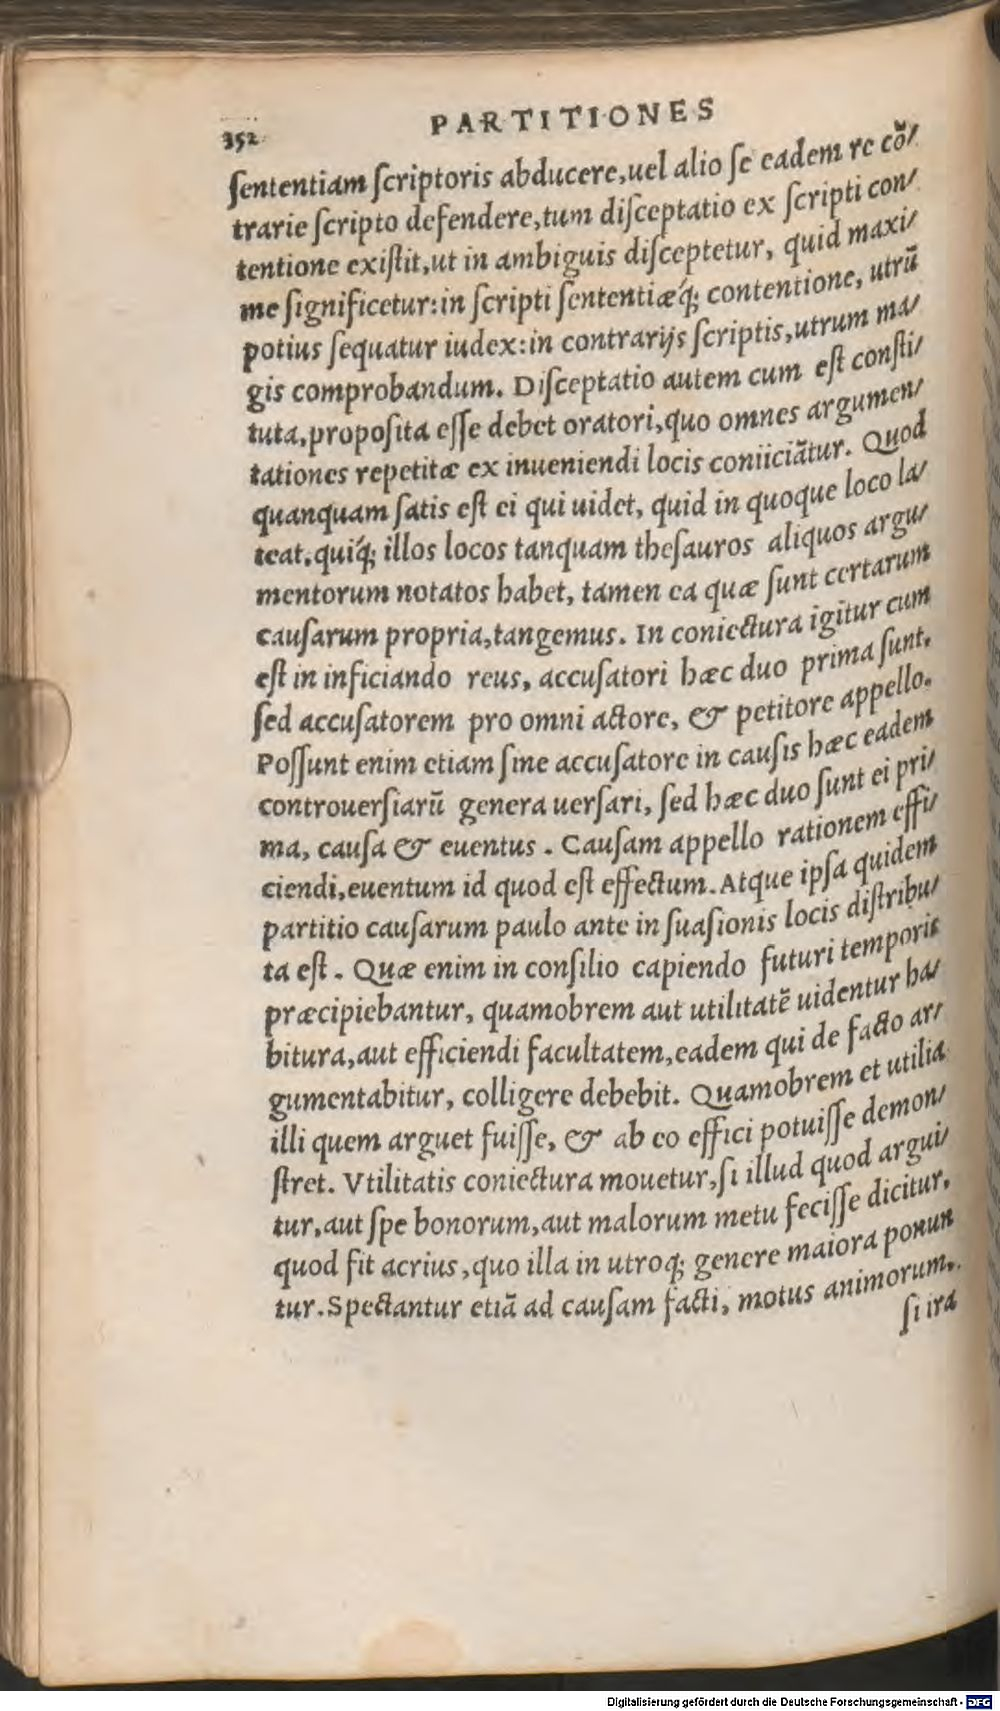 352 PARTITIONES
ſententiam ſcriptoris abducere,uel alio ſe eadem re cõ/
trarie ſcripto defendere,tum diſceptatio ex ſcripti con/
tentione exiſtit,ut in ambiguis diſceptetur, quid maxi/
me ſignificetur:in ſcripti ſententiæq́; contentione, utrũ
potius ſequatur iudex:in contrarijs ſcriptis,utrum ma/
gis comprobandum. Diſceptatio autem cum eſt conſti/
tuta,propoſita eſſe debet oratori,quo omnes argumen/
tationes repetitæ ex inueniendi locis coniiciãtur. Quod
quanquam ſatis eſt ei qui uidet, quid in quoque loco la/
teat,quiq́; illos locos tanquam theſauros aliquos argu/
mentorum notatos habet, tamen ea quæ ſunt certarum
cauſarum propria,tangemus. In coniectura igitur cum
eſt in inficiando reus, accuſatori hæc duo prima ſunt.
ſed accuſatorem pro omni actore, & petitore appello.
Poſſunt enim etiam ſine accuſatore in cauſis hæc eadem
controuerſiarũ genera uerſari, ſed hæc duo ſunt ei pri/
ma, cauſa & euentus . Cauſam appello rationem effi/
ciendi,euentum id quod eſt effectum.Atque ipſa quidem
partitio cauſarum paulo ante in ſuaſionis locis diſtribu/
ta eſt . Quæ enim in conſilio capiendo futuri temporis
præcipiebantur, quamobrem aut utilitatẽ uidentur ha/
bitura,aut efficiendi facultatem,eadem qui de facto ar/
gumentabitur, colligere debebit. Quamobrem et utilia
illi quem arguet fuiſſe, & ab eo effici potuiſſe demon/
ſtret. Vtilitatis coniectura mouetur,ſi illud quod argui/
tur,aut ſpe bonorum,aut malorum metu feciſſe dicitur,
quod fit acrius,quo illa in utroq; genere maiora ponun
tur.Spectantur etiã ad cauſam facti, motus animorum,
ſi ira
Digitalisierung gefördert durch die Deutsche Forschungsgemeinschaft - DFG